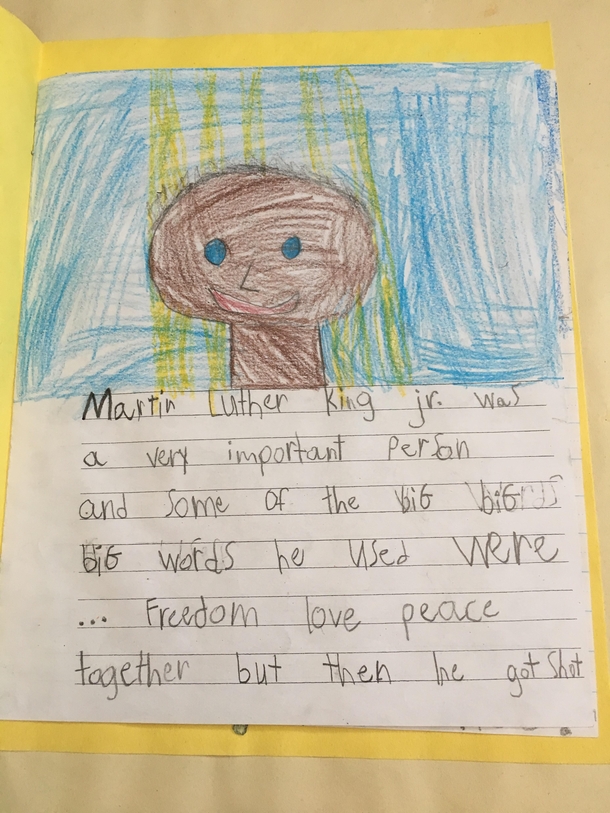 Martin Luther King jr. was
a very important Person
and some of the big big
big words he used were
... Freedom love peace
together but then he got shot